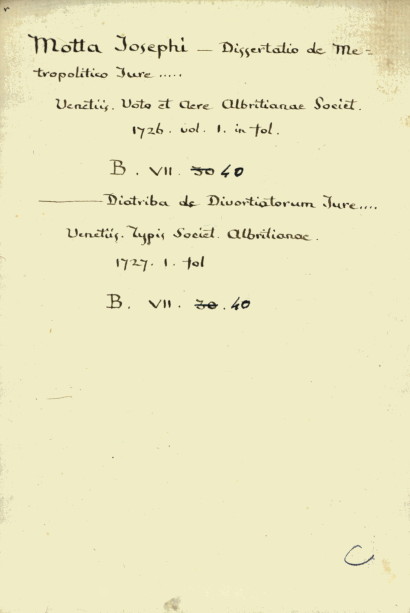 Motta Josephi — Dissertatio de Me-
tropolitico Jure .....
Venetiis. Voto et Aere Albritianae Societ.
1726. vol. 1. in fol.
B. VII. 30 40
——— Diatriba de Divortiatorum Jure....
Venetiis. Typis Societ. Albritianae.
1727. 1. fol
B. VII. 30. 40
C